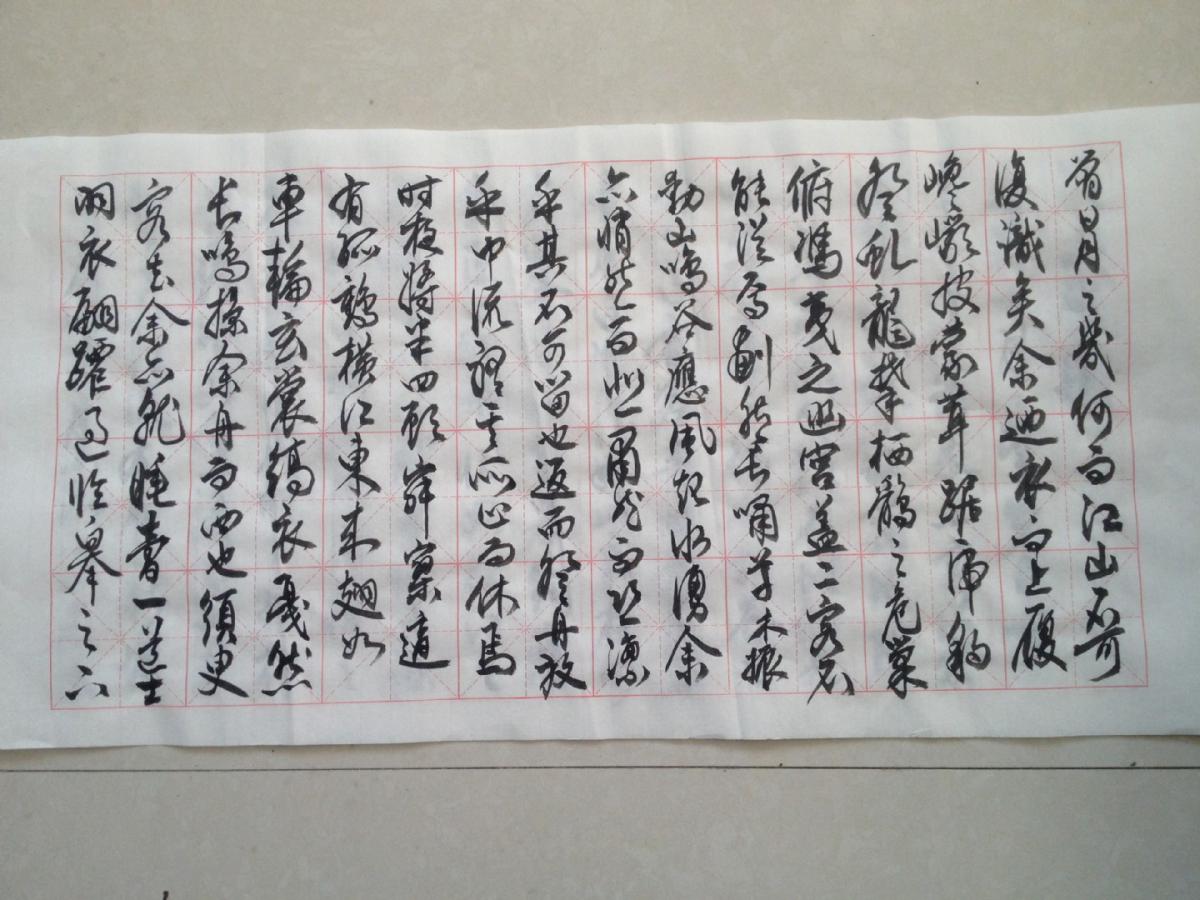 曾日月之幾何而江山不可
復識矣余迺衣而上履
巉巖披蒙茸踞虎豹
登虬龍攀栖鶻之危巢
俯馮夷之幽宫蓋二客不
能從焉劃然長嘯草木振
動山鳴谷應風起水湧余
亦悄然而悲肅然而恐凛
乎其不可留也返而登舟放
乎中流聽其所止而休焉
时夜將半四顧寂寥適
有孤鶴橫江東来翅如
車輪玄裳縞衣戛然
長鳴掠余舟而西也須臾
客去余亦就睡夢一道士
羽衣翩躚過臨皋之下